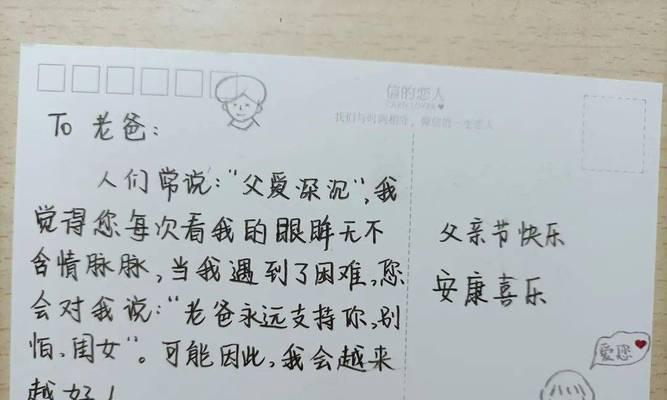 信的恋人
CARD LOVER
我们与时间相守，做信的一生恋人
To 老爸：
人们常说："父爱深沉"，我
觉得您每次看我的眼眸无不
含情脉脉，当我遇到了困难，您
会对我说："老爸永远支持你，别
怕，闺女"。可能因此，我会越来
越好！
父亲节快乐
安康喜乐
爱您